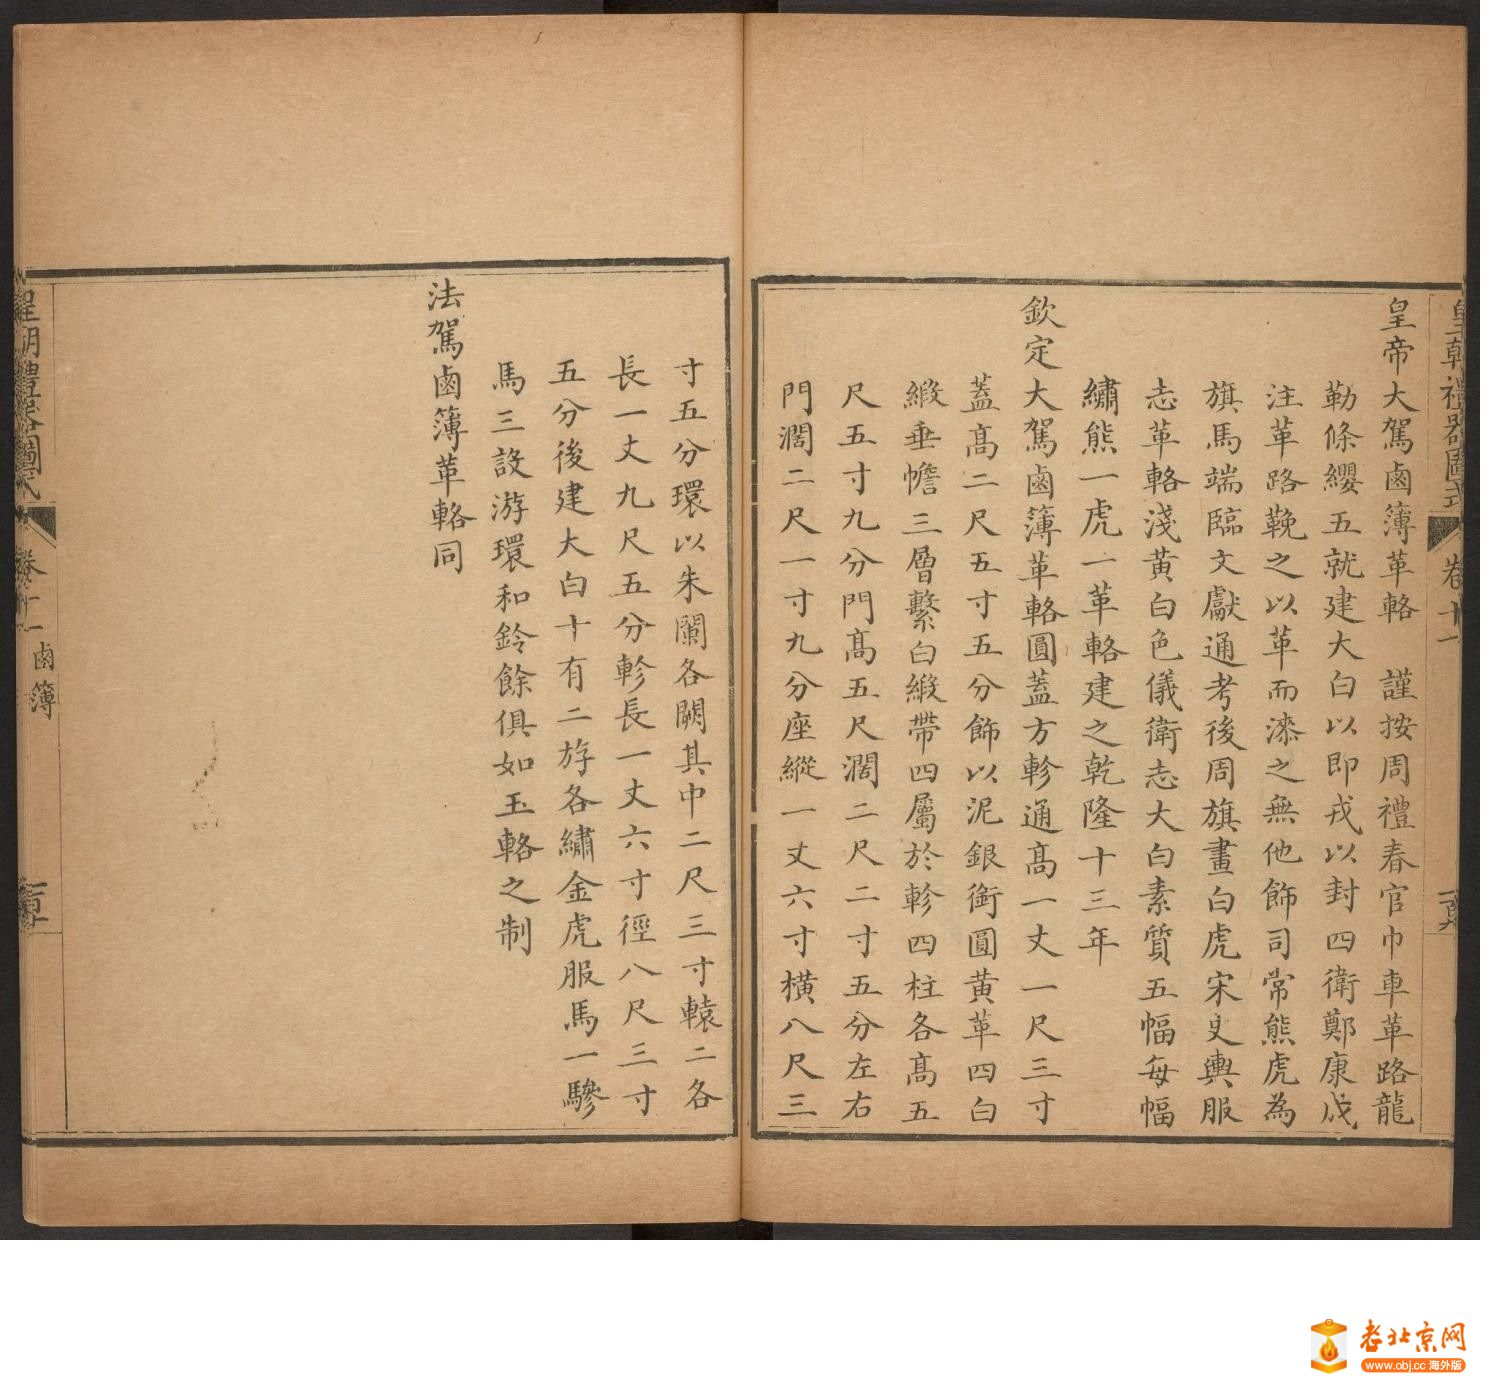 皇朝禮器圖式 卷十一
皇帝大駕鹵簿革輅　謹按周禮春官巾車革路龍
勒條纓五就建大白以即戎以封四衛鄭康成
注革路鞔之以革而漆之無他飾司常熊虎為
旗馬端臨文獻通考後周旗畫白虎宋史輿服
志革輅淺黃白色儀衛志大白素質五幅每幅
繡熊一虎一革輅建之乾隆十三年
欽定大駕鹵簿革輅圓蓋方軫通高一丈一尺三寸
蓋高二尺五寸五分飾以泥銀銜圓黃革四白
緞垂幨三層繫白緞帶四屬於軫四柱各高五
尺五寸九分門高五尺濶二尺二寸五分左右
門濶二尺一寸九分座縱一丈六寸橫八尺三
寸五分環以朱闌各闕其中二尺三寸轅二各
長一丈九尺五分軫長一丈六寸徑八尺三寸
五分後建大白十有二斿各繡金虎服馬一驂
馬三設游環和鈴餘俱如玉輅之制
法駕鹵簿革輅同
皇朝禮器圖式 卷十一 鹵簿
老北京网
www.obj.cc 海外版